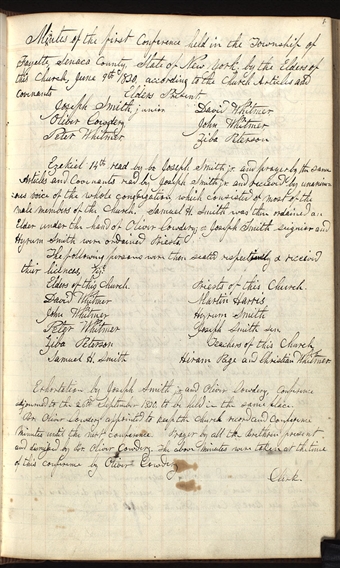 Minutes of the first Conference held in the Township of
Fayette, Seneca County, State of New York, by the Elders of
this Church, June 9th 1830, according to the Church Articles and
Covenants Elders Present
Joseph Smith junior David Whitmer
Oliver Cowdery John Whitmer
Peter Whitmer Ziba Peterson
Ezekiel 14th read by br Joseph Smith jr and prayer by the same
Articles and Covenants read by Joseph Smith jr and received by unanim
ous voice of the whole congregation, which consisted of most of the
male members of the Church. Samuel H. Smith was then ordained an
Elder under the hand of Oliver Cowdery & Joseph Smith senior and
Hyrum Smith were ordained Priests
The following persons were then seated respectively & received
their licences, Viz:
Elders of this Church. Priests of this Church.
David Whitmer Martin Harris
John Whitmer Hyrum Smith
Peter Whitmer Joseph Smith sen
Ziba Peterson Teachers of this Church
Samuel H. Smith Hiram Page and Christian Whitmer
Exhortation by Joseph Smith jr and Oliver Cowdery Conference
adjourned to the 26th September 1830, to be held in the same place.
Br Oliver Cowdery appointed to keep the Church record and Conference
minutes until the next Conference. Prayer by all the brethren present
and dismissed by br Oliver Cowdery. The above minutes were taken at the time
of this conference by Oliver Cowdery
Clerk.